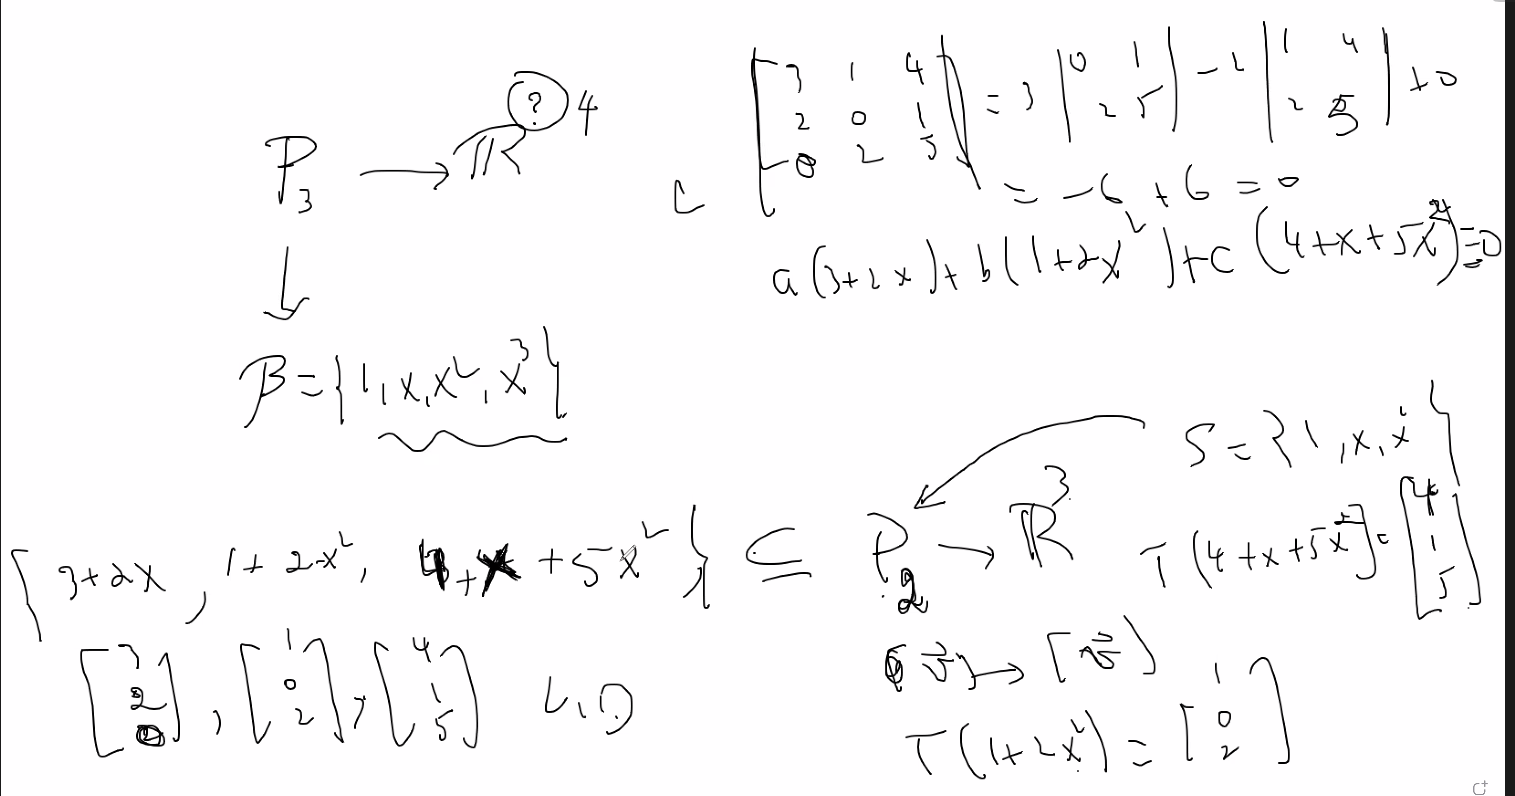 P₃ → ℝ^? 4
β = {1, x, x², x³}
[3 1 4
2 0 1
0 2 5] = 3 |0 1
2 5| - 2 |1 4
2 5| + 0
= -6 + 6 = 0
a(3+2x) + b(1+2x²) + c(4+x+5x²) = 0
S = {1, x, x²}
{3+2x, 1+2x², 4+x+5x²} ⊆ P₂ → ℝ³
T(4+x+5x²) = [4
1
5]
[3
2
0], [1
0
2], [4
1
5] L.D
T(1+2x²) = [1
0
2]